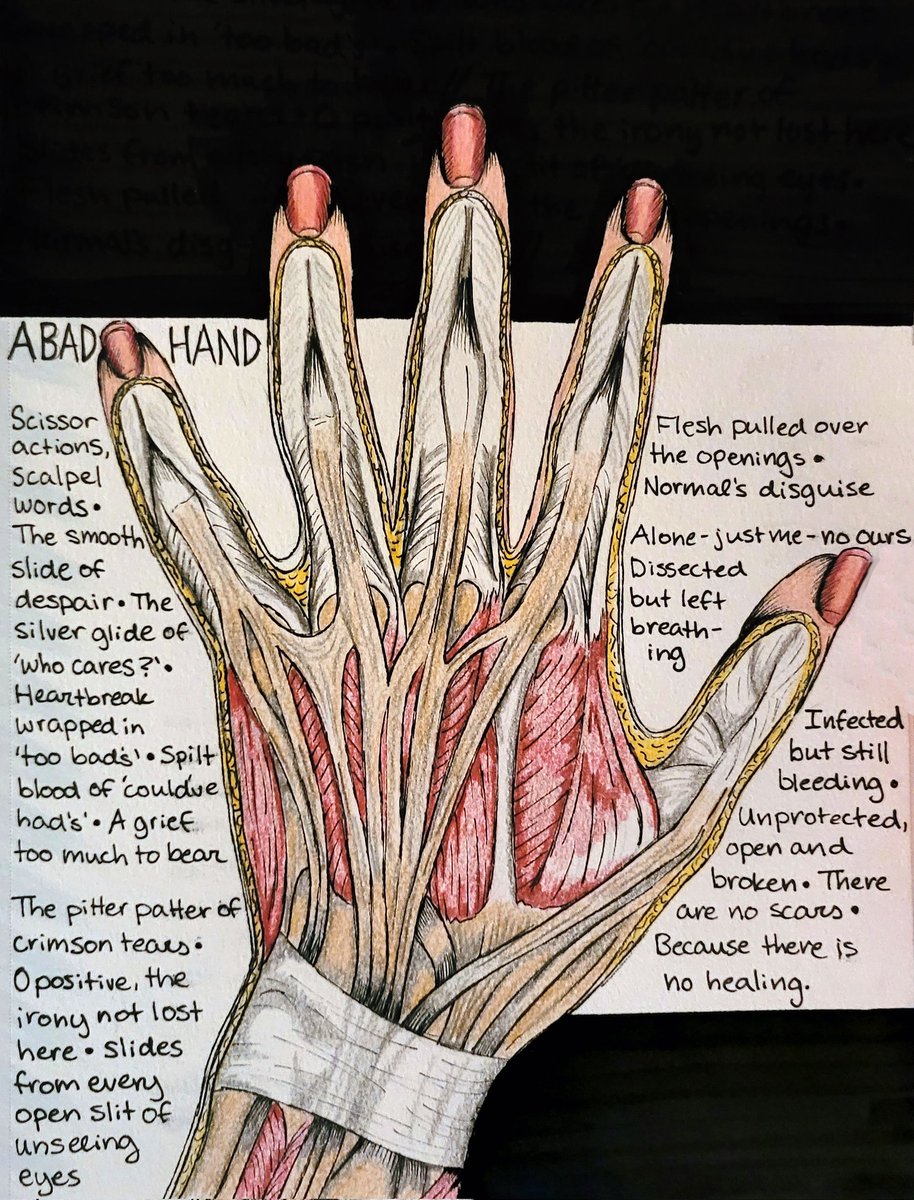 in 'too bad's'. Spilt
grief too much to // The pitter patter of
the irony not lost here
slides from eyes.
pulled the
Normal's
A BAD HAND
Scissor
actions,
Scalpel
words•
The smooth
slide of
despair• The
silver glide of
'who cares?'•
Heartbreak
wrapped in
'too bad's'• Spilt
blood of 'could've
had's'• A grief
too much to bear
The pitter patter of
crimson tears•
O positive, the
irony not lost
here• slides
from every
open slit of
unseeing
eyes
Flesh pulled over
the openings•
Normal's disguise
Alone-just me-no ours
Dissected
but left
breath-
ing
Infected
but still
bleeding•
Unprotected,
open and
broken• There
are no scars•
Because there is
no healing.